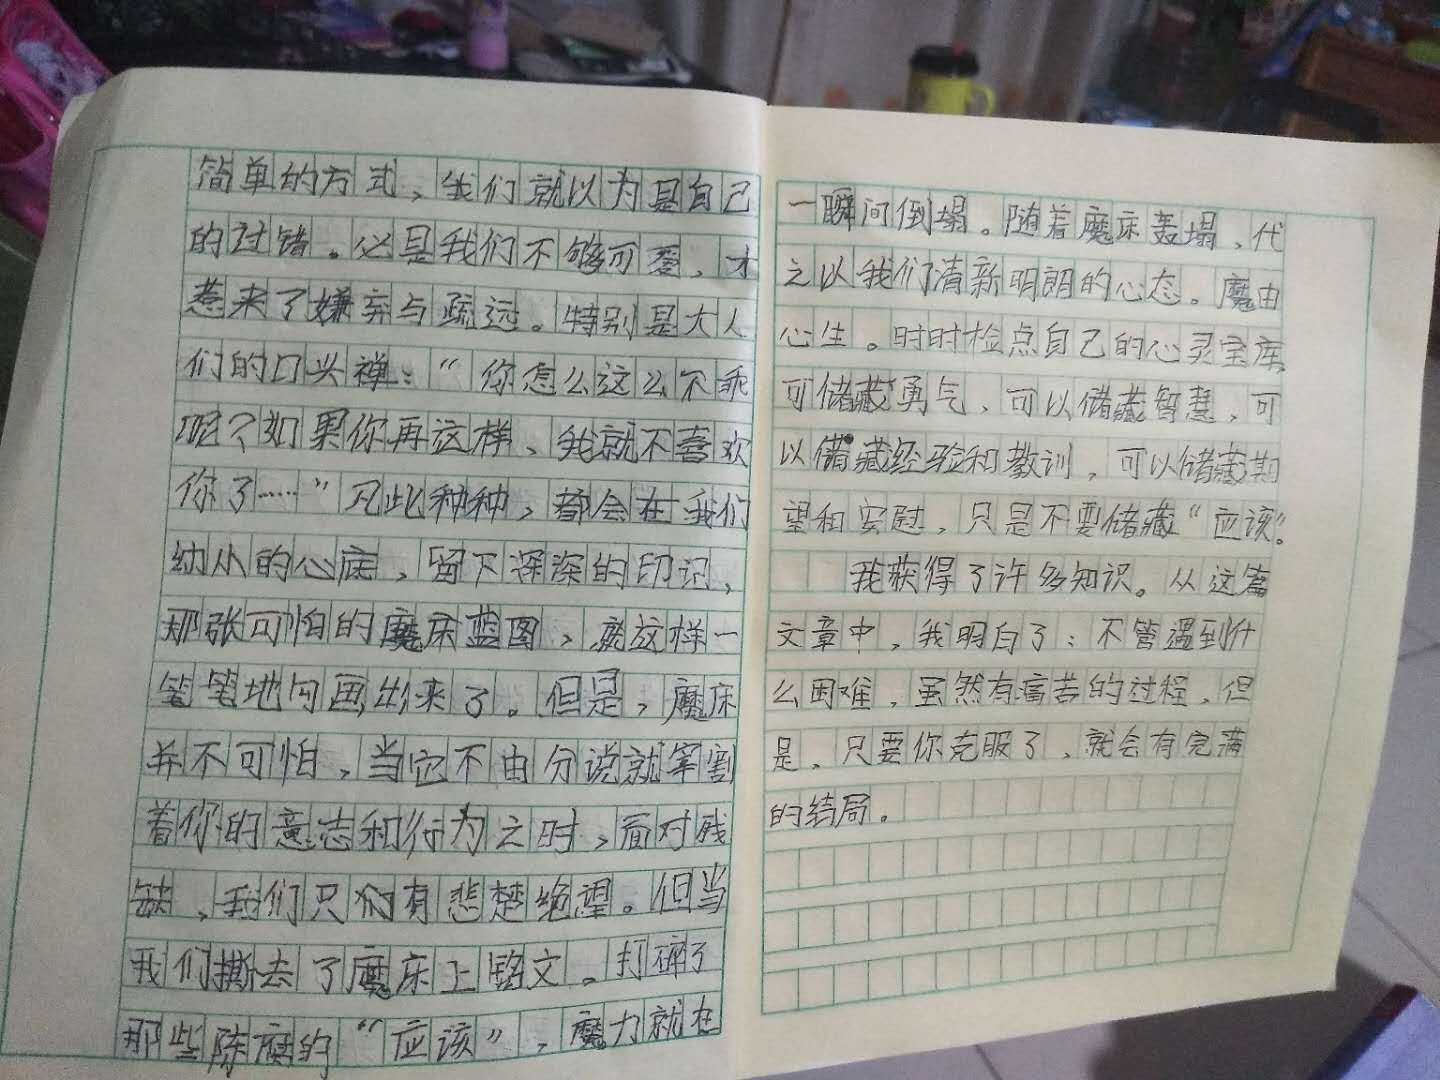 简单的方式，我们就以为是自己
的过错。必是我们不够可爱，才
惹来了嫌弃与疏远。特别是大人
们的口头禅：“你怎么这么不乖
呢？如果你再这样、我就不喜欢
你了……”凡此种种，都会在我们
幼小的心底，留下深深的印记，
那张可怕的魔床蓝图，就这样一
笔笔地勾画出来了。但是，魔床
并不可怕，当它不由分说就宰割
着你的意志和行为之时，面对残
缺、我们只有悲楚绝望。但当
我们撕去了魔床上铭文，打碎了
那些陈腐的“应该”，魔力就在
一瞬间倒塌。随着魔床轰塌、代
之以我们清新明朗的心态。魔由
心生。时时检点自己的心灵宝库
可储藏勇气、可以储藏智慧，可
以储藏经验和教训，可以储藏期
望和安慰，只是不要储藏“应该”。
我获得了许多知识。从这篇
文章中，我明白了：不管遇到什
么困难，虽然有痛苦的过程，但
是，只要你克服了，就会有完满
的结局。